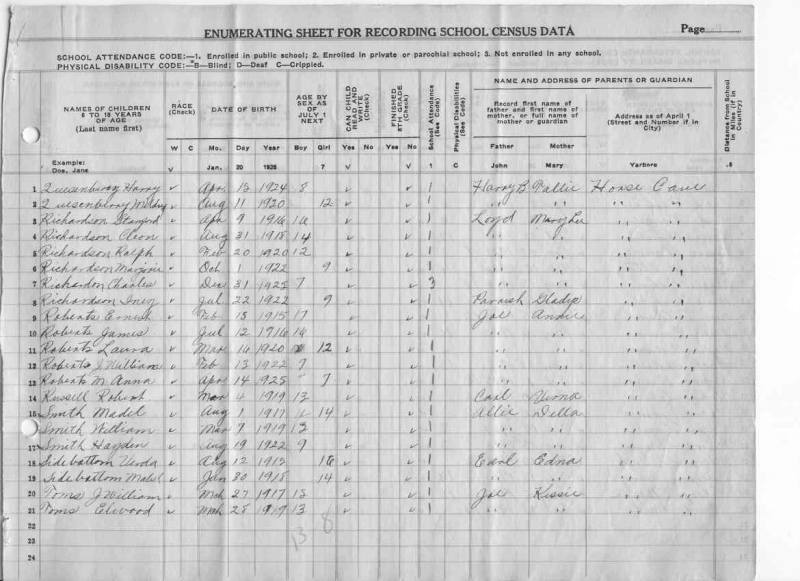 ENUMERATING SHEET FOR RECORDING SCHOOL CENSUS DATA Page
SCHOOL ATTENDANCE CODE:—1. Enrolled in public school; 2. Enrolled in private or parochial school; 3. Not enrolled in any school.
PHYSICAL DISABILITY CODE:—B—Blind; D—Deaf C—Crippled.
NAMES OF CHILDREN 6 TO 18 YEARS OF AGE (Last name first) RACE (Check) DATE OF BIRTH AGE BY SEX AS OF JULY 1 NEXT CAN CHILD READ AND WRITE (Check) FINISHED 8TH GRADE (Check) School Attendance (See Code) Physical Disabilities (See Code) NAME AND ADDRESS OF PARENTS OR GUARDIAN Distance from School in Miles (if in Country)
Record first name of father and first name of mother, or full name of mother or guardian Address as of April 1 (Street and Number if in City)
W C Mo. Day Year Boy Girl Yes No Yes No Father Mother
Example: Doe, Jane V Jan. 20 1926 7 √ √ 1 C John Mary Yarbore .5
1 Quesenberry Harry v Apr 13 1924 8 v v 1 Harry B Pallie Horse Cave
2 Quesenberry v Aug 11 1920 12 v v 1 " " " "
3 Richardson v Apr 9 1916 16 v v 1 Loyd " "
4 Richardson Cleon v Aug 31 1918 14 v v 1 " " " "
5 Richardson Ralph v Feb 20 1920 12 v v 1 " " " "
6 Richardson Marjorie v Oct 1 1922 9 v v 1 " " " "
7 Richardson Charles v Dec 31 7 v v 3 " " " "
8 Richardson v Jul 22 1922 9 v v 1 Parrish Gladys " "
9 Roberts Ernest v Feb 15 1915 17 v v 1 Joe Annie " "
10 Roberts James v Jul 12 1916 v v 1 " " " "
11 Roberts Laura v Mar 16 1920 12 v v 1 " " " "
12 Roberts J William v Feb 13 1922 v v 1 " " " "
13 Roberts M Anna v Apr 14 1925 7 v v 1 " " " "
14 Russell Robert v Mar 4 1919 13 v v 1 Carl Verna " "
15 Smith Madel v Aug 1 1917 14 v v 1 Allie Della " "
16 Smith William v Mar 7 1919 v v 1 " " " "
17 Smith Hayden v Aug 19 1922 9 v v 1 " " " "
18 Sidebottom Verda v Aug 12 1915 16 v v 1 Earl Edna " "
19 Sidebottom Mabel v Jun 30 1918 14 v v 1 " " " "
20 Toms J William v Mch 27 1917 15 v v 1 Joe Kissie " "
21 Toms Elwood v Mch 28 1919 13 v v 1 " " " "
22
23
24
13 8